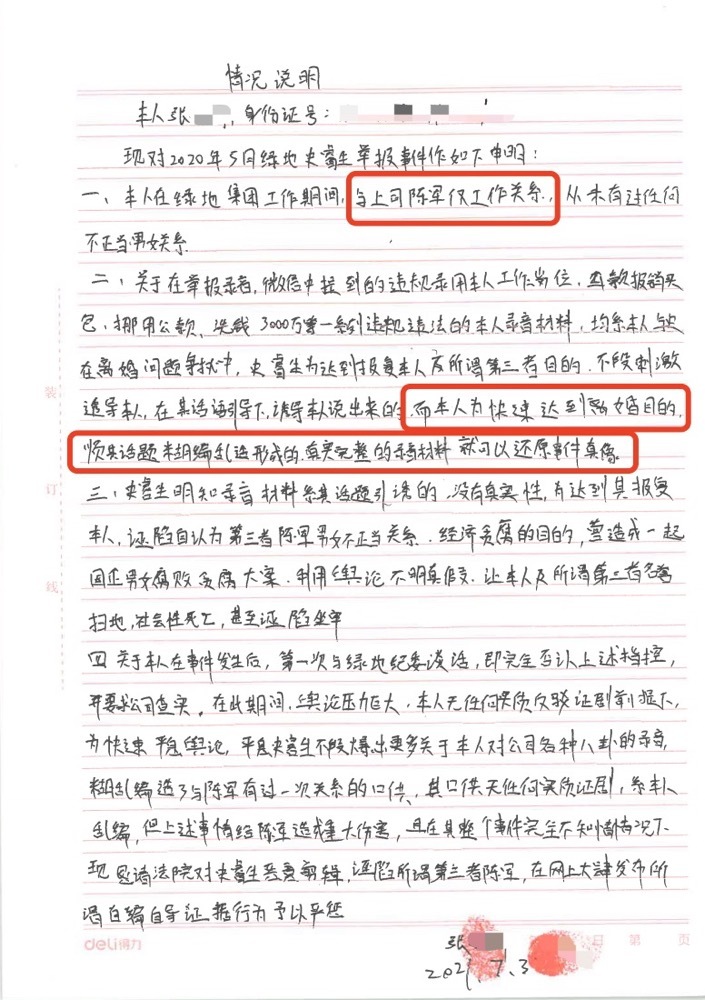 情况说明
本人张 ，身份证号：
现对2020年5月绿地史睿生举报事件作如下申明：
一、本人在绿地集团工作期间，与上司陈军仅工作关系，从未有过任何
不正当男女关系
二、关于在举报录音，微信中提到的违规录用本人工作岗位，公款报销买
包，挪用公款、洗钱3000万等一系列违规违法的本人录音材料，均系本人与史
在离婚问题争执中，史睿生为达到报复本人及所谓第三者目的，不段刺激
追导本人，在其话语引导下，诱导本人说出来的，而本人为快速达到离婚目的，
顺其话题胡编乱造形成的，真实完整的录音材料就可以还原事件真像。
三、史睿生明知录音材料系其话题引诱的，没有真实性，为达到其报复
本人，诬陷自认为第三者陈军男女不正当关系、经济贪腐的目的，营造成一起
国企男女腐败贪腐大案，利用舆论不明真假，让本人及所谓第三者名誉
扫地，社会性死亡，甚至诬陷坐牢
四 关于本人在事件发生后，第一次与绿地纪委谈话，即完全否认上述指控，
并要求公司查实，在此期间，舆论压力巨大，本人无任何实质反驳证剧前提下，
为快速平息舆论，平息史睿生不段爆出更多关于本人对公司各种八卦的录音，
糊乱编造了与陈军有过一次关系的口供，其口供无任何实质证剧，系本人
乱编，但上述事情给陈军造成重大伤害，且在其整个事件完全不知情情况下
现恳请法院对史睿生恶意剪辑，诬陷所谓第三者陈军，在网上大肆发布所
谓自编自导证据行为予以严惩
张
2021.7.3
装
订
线
deli得力
日 第 页